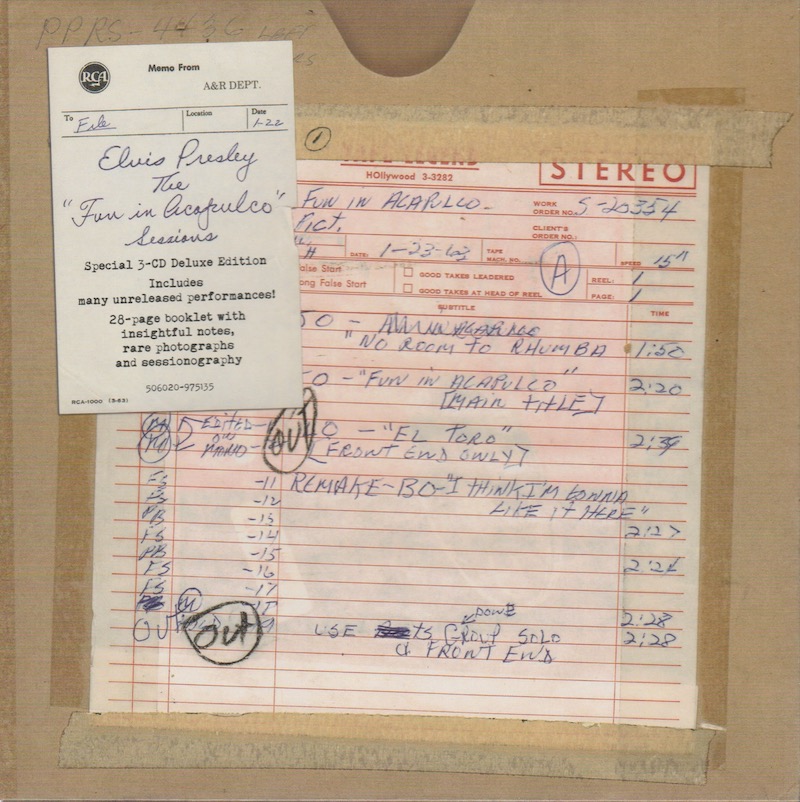 PPRS-4436
RCA
Memo From
A&R DEPT.
To File
Location
Date 1-22
Elvis Presley
The
"Fun in Acapulco"
Sessions
Special 3-CD Deluxe Edition
Includes
many unreleased performances!
28-page booklet with
insightful notes,
rare photographs
and sessionography
506020-975135
RCA-1000 (5-63)
1
STEREO
HOllywood 3-3282
FUN IN ACAPULCO
WORK ORDER NO. S-20354
PICT.
CLIENT'S ORDER NO.:
DATE: 1-23-63
TAPE MACH. NO.
A
SPEED 15"
alse Start
GOOD TAKES LEADERED
REEL: 1
ong False Start
GOOD TAKES AT HEAD OF REEL
PAGE: 1
SUBTITLE
TIME
"NO ROOM TO RHUMBA 1:50
O - "FUN IN ACAPULCO" 2:20
[MAIN TITLE]
EDITED OUT O - "EL TORO" 2:39
ON MONO [FRONT END ONLY]
-11 REMAKE-BO-"I THINK I'M GONNA
-12 LIKE IT HERE"
-13 2:27
FS -14
-15
FS -16 2:26
FS -17
2:28
DONE
OUT HOLD OUT USE GROUP SOLO 2:28
& FRONT END